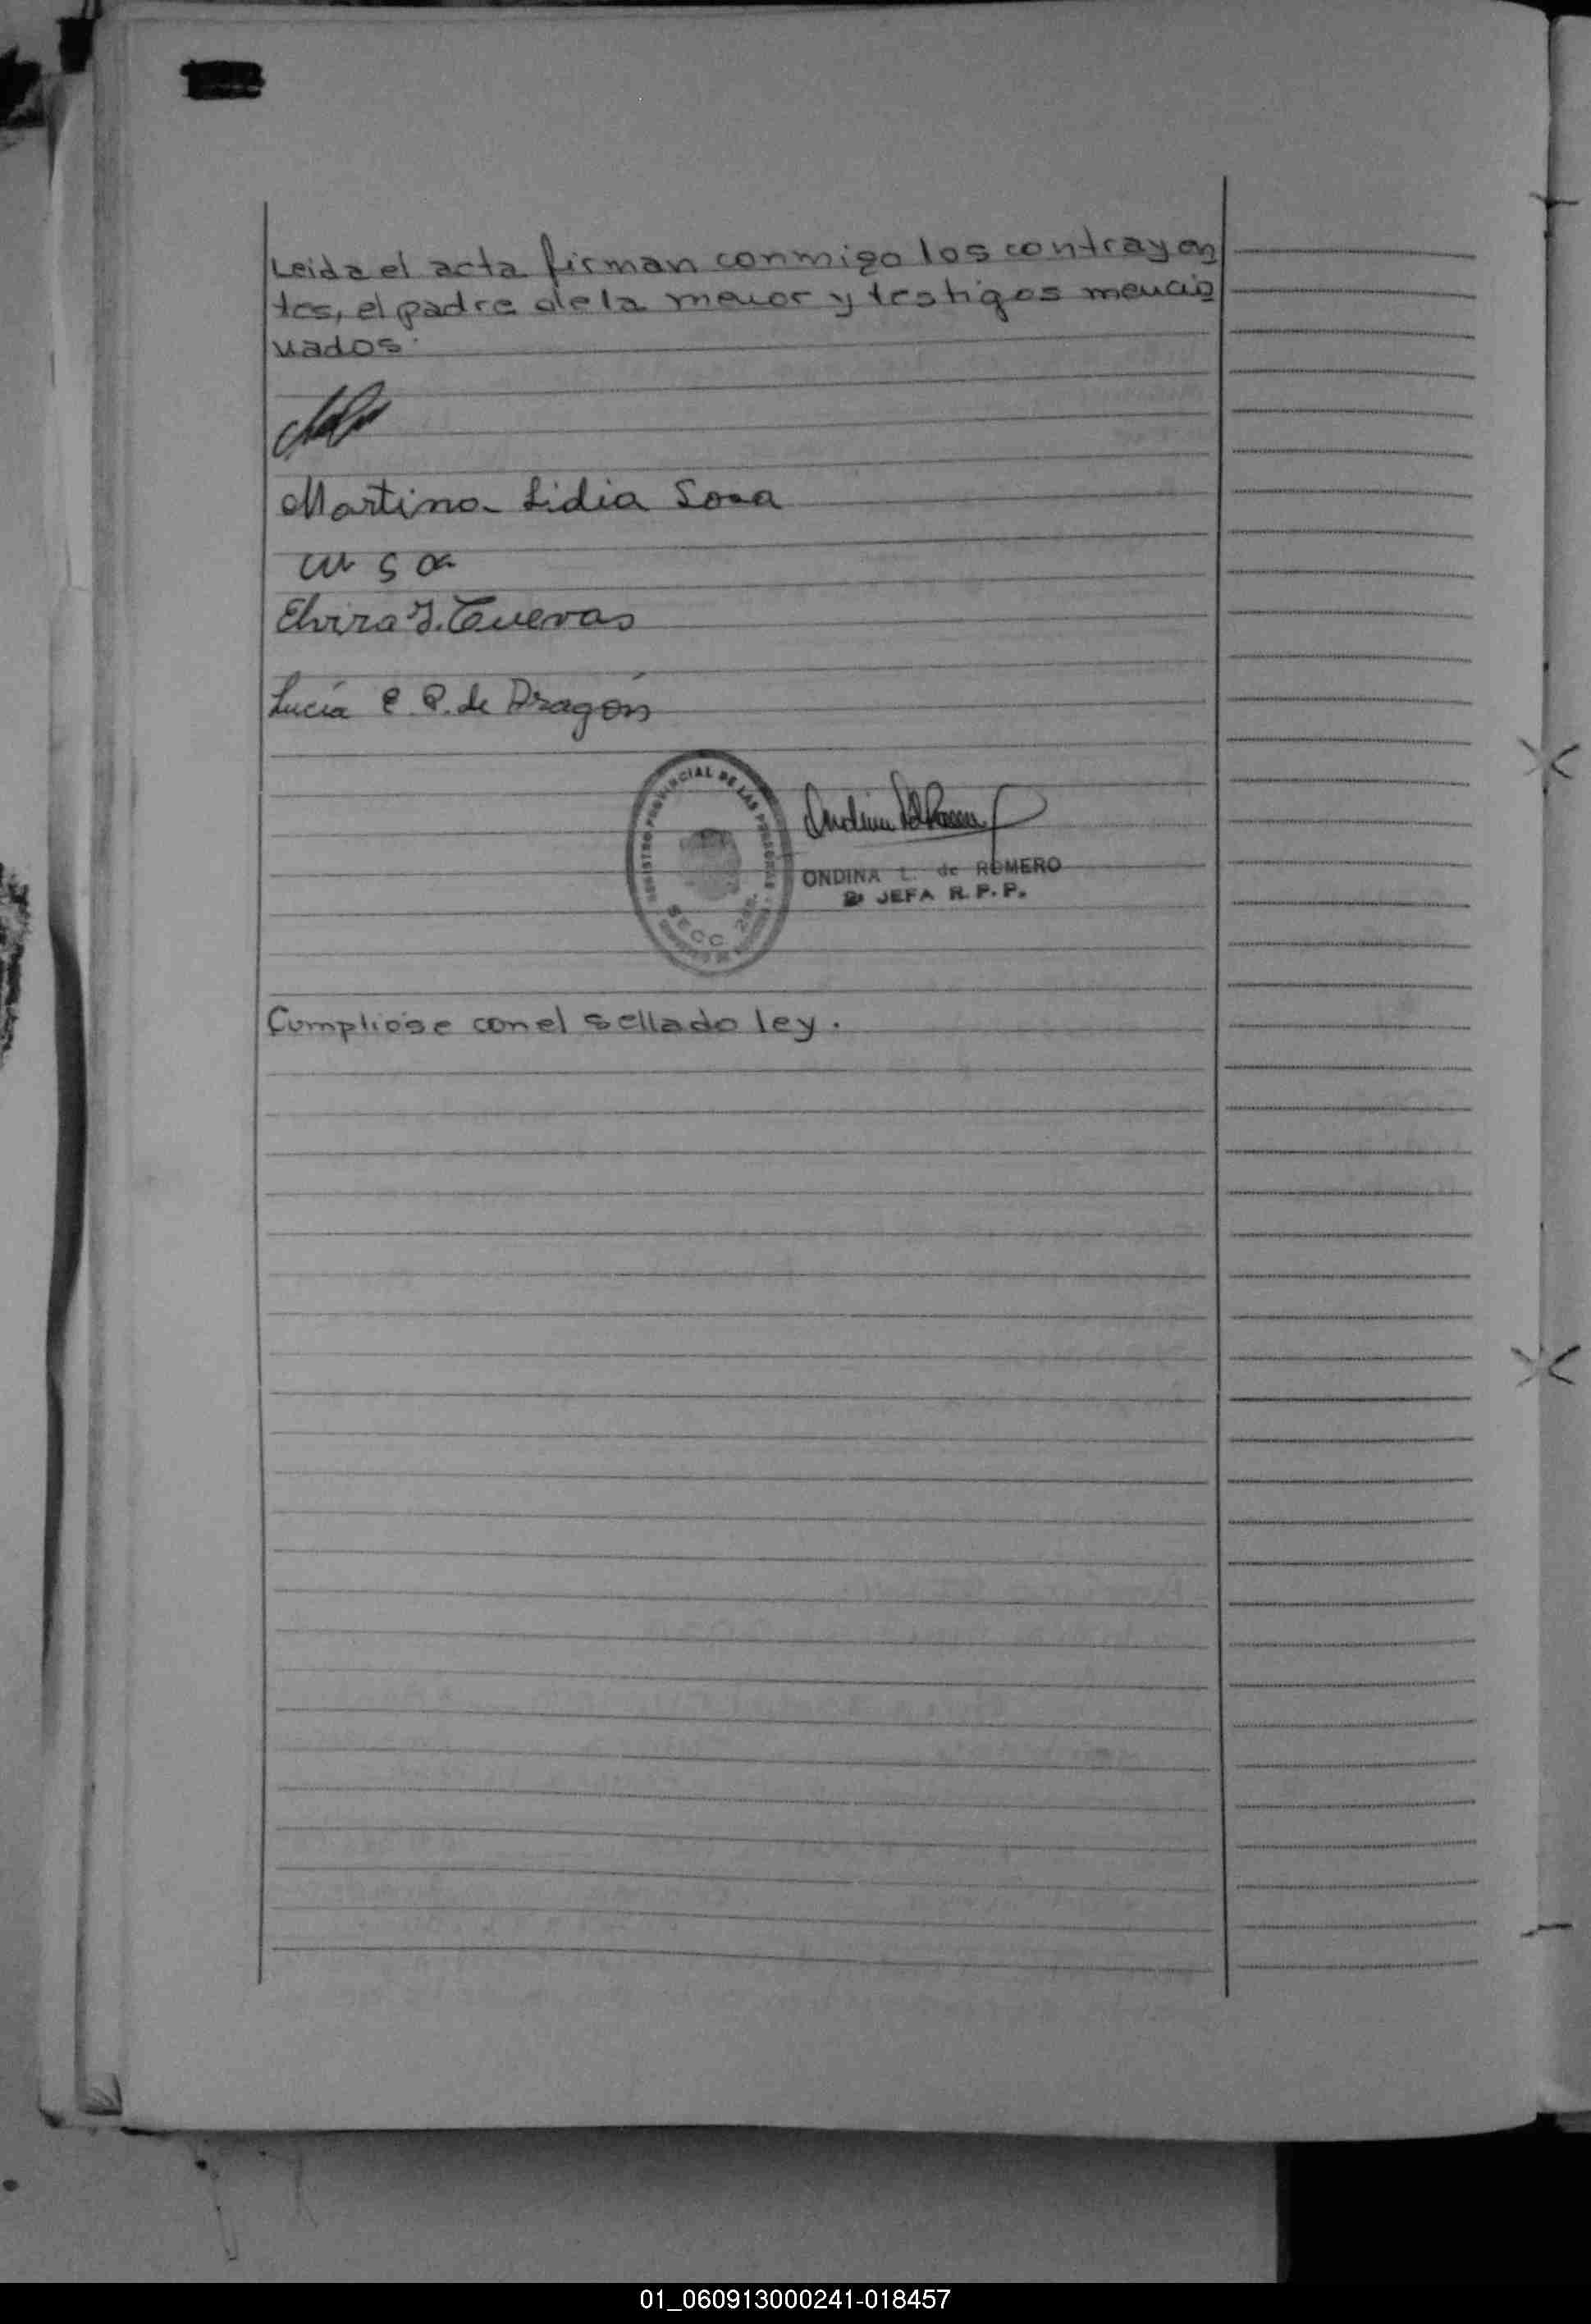 Leida el acta firman conmigo los contrayen
tes, el padre de la menor y testigos mencio
nados.
Martina Lidia Sosa
Elvira J. Cuevas
Lucía E. P. de Aragón
REGISTRO PROVINCIAL DE LAS PERSONAS
SECC.
ONDINA L. de ROMERO
2ª JEFA R. P. P.
Cumplióse con el sellado ley.
01_060913000241-018457